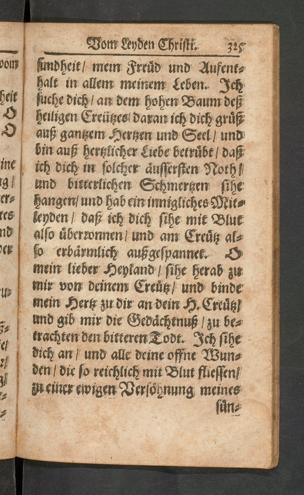 Vom Leyden Christi. 325
sundheit / mein Freüd und Aufent-
halt in allem meinem Leben. Ich
suche dich / an dem hohen Baum deß
heiligen Creützes / daran ich dich grüß
auß gantzem Hertzen und Seel / und
bin auß hertzlicher Liebe betrübt / daß
ich dich in solcher äussersten Noth /
und bitterlichen Schmertzen sihe
hangen / und hab ein innigliches Mit-
leyden / daß ich dich sihe mit Blut
also überronnen / und am Creütz al-
so erbärmlich außgespannet. O
mein lieber Heyland / sihe herab zu
mir von deinem Creütz / und binde
mein Hertz zu dir an dein H. Creütz /
und gib mir die Gedächtnuß / zu be-
trachten den bitteren Todt. Ich sihe
dich an / und alle deine offne Wun-
den / die so reichlich mit Blut fliessen /
zu einer ewigen Versöhnung meines
sün-